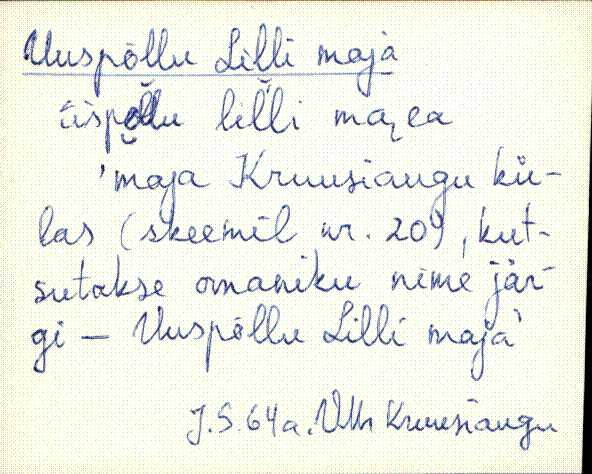 Uuspõllu Lilli maja
lilli
'maja Kruusiaugu kü-
las (skeemil nr. 20), kut-
sutakse omaniku nime jär-
gi – Uuspõllu Lilli maja'
J.S. 64 a. VMr Kruusiaugu